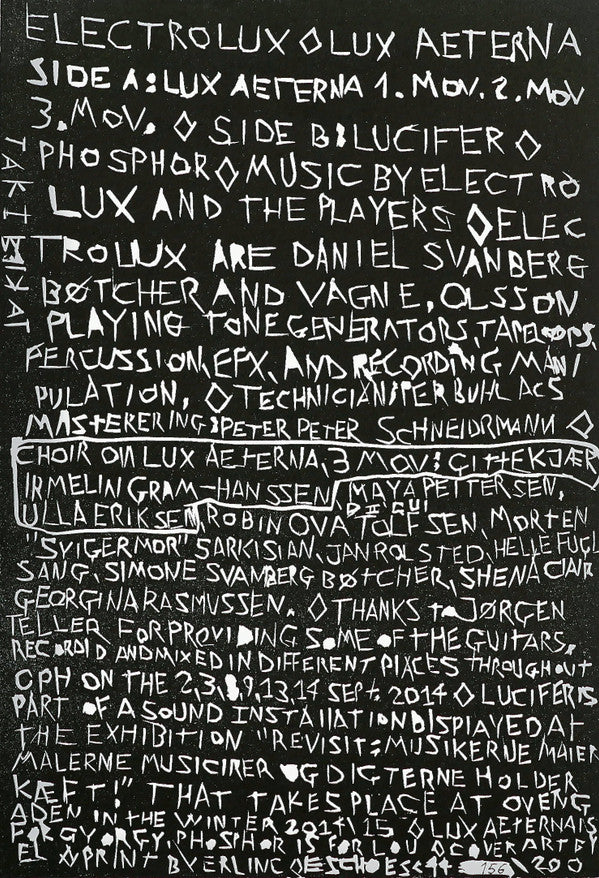 ELECTROLUX ◊ LUX AETERNA
SIDE A: LUX AETERNA 1. MOV. 2. MOV
3. MOV. ◊ SIDE B: LUCIFER ◊
PHOSPHOR ◊ MUSIC BY ELECTRO
LUX AND THE PLAYERS ◊ ELEC
TROLUX ARE DANIEL SVANBERG
BØTCHER AND VAGN E. OLSSON
PLAYING TONEGENERATORS, TAPELOOPS,
PERCUSSION, EFX, AND RECORDING MANI
PULATION, ◊ TECHNICIAN: PER BUHL ACS
MASTERERING: PETER PETER SCHNEIDRMANN ◊
CHOIR ON LUX AETERNA, 3 MOV: GITTE KJÆR
IRMELIN GRAM-HANSSEN, MAYA PETTERSEN,
ULLA ERIKSEN, ROBIN OVA TOLFSEN, MORTEN
"SVIGERMOR" SARKISIAN, JAN ROLSTED, HELLE FUGL
SANG, SIMONE SVANBERG BØTCHER, SHENA CLAIR
GEORGINA RASMUSSEN. ◊ THANKS to JØRGEN
TELLER FOR PROVIDING SOME OF THE GUITARS,
RECORDID AND MIXED IN DIFFERENT PLACES THROUGHOUT
CPH ON THE 2,3,8,9,13,14 SEPT. 2014 ◊ LUCIFER IS
PART OF A SOUND INSTALLATION DISPLAYED AT
THE EXHIBITION "REVISIT: MUSIKERNE MALER
MALERNE MUSICIRER OG DIGTERNE HOLDER
KÆFT!" THAT TAKES PLACE AT OVENG
ADEN IN THE WINTER 2014\15 ◊ LUX AETERNA IS
FOR GYORGY, PHOSPHOR IS FOR LOU ◊ COVER ART BY
EL ◊ PRINT BY
156 \ 200
TAKT